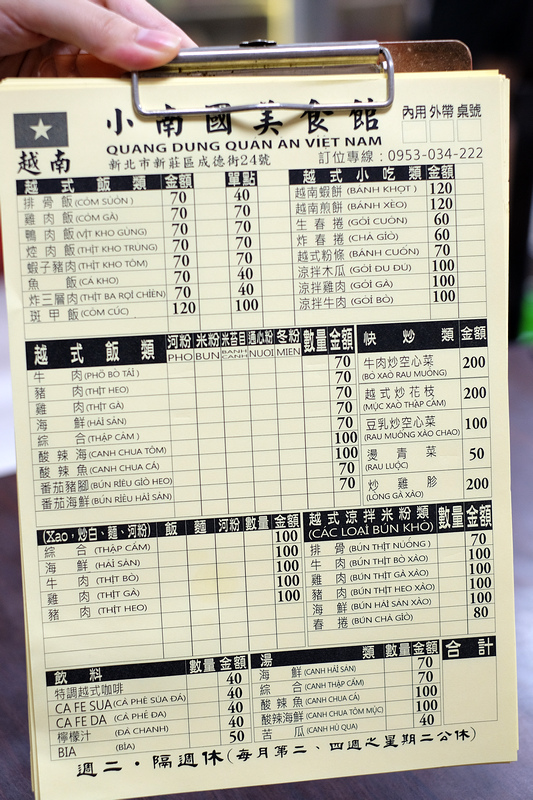 小南國美食館
內用 外帶 桌號
越南
QUANG DUNG QUÁN ĂN VIỆT NAM
新北市新莊區成德街24號 訂位專線：0953-034-222
越式飯類 金額 單點
排骨飯(CƠM SƯỜN) 70 40
雞肉飯(CƠM GÀ) 70 70
鴨肉飯(VỊT KHO GỪNG) 70 70
焢肉飯(THỊT KHO TRUNG) 70 70
蝦子豬肉(THỊT KHO TÔM) 70 70
魚飯(CÁ KHO) 70 40
炸三層肉(THỊT BA RỌI CHIÊN) 70 40
斑甲飯(CƠM CÚC) 120 100
越式小吃類 金額
越南蝦餅(BÁNH KHỌT) 120
越南煎餅(BÁNH XÈO) 120
生春捲(GỎI CUỐN) 60
炸春捲(CHẢ GIÒ) 60
越式粉條(BÁNH CUỐN) 70
涼拌木瓜(GỎI ĐU ĐỦ) 100
涼拌雞肉(GỎI GÀ) 100
涼拌牛肉(GỎI BÒ) 100
越式飯類 河粉 米粉 米苔目 通心粉 冬粉 數量 金額
PHO BUN BANH CANH NUOI MIEN
牛肉(PHỞ BÒ TÁI) 70
豬肉(THỊT HEO) 70
雞肉(THỊT GÀ) 70
海鮮(HẢI SẢN) 70
綜合(THẬP CẨM) 70
酸辣海(CANH CHUA TÔM) 100
酸辣魚(CANH CHUA CÁ) 100
番茄豬腳(BÚN RIÊU GIÒ HEO) 70
番茄海鮮(BÚN RIÊU HẢI SẢN) 70
快炒類 金額
牛肉炒空心菜 200
(BÒ XÀO RAU MUỐNG)
越式炒花枝 200
(MỰC XÀO THẬP CẨM)
豆乳炒空心菜 100
(RAU MUỐNG XÀO CHAO)
燙青菜 50
(RAU LUỘC)
炒雞胗 200
(LÒNG GÀ XÀO)
(Xao，炒白、麵、河粉) 飯 麵 河粉 數量 金額
綜合(THẬP CẨM) 100
海鮮(HẢI SẢN) 100
牛肉(THỊT BÒ) 100
雞肉(THỊT GÀ) 100
豬肉(THỊT HEO) 100
越式涼拌米粉類 數量 金額
(CÁC LOẠI BÚN KHÔ)
排骨(BÚN THỊT NUÓNG) 70
牛肉(BÚN THỊT BÒ XÀO) 100
雞肉(BÚN THỊT GÀ XÀO) 100
豬肉(BÚN THỊT HEO XÀO) 100
海鮮(BÚN HẢI SẢN XÀO) 100
春捲(BÚN CHẢ GIÒ) 80
飲料 數量 金額
特調越式咖啡 40
CA FE SUA(CÀ PHÊ SỮA ĐÁ) 40
CA FE DA (CÀ PHÊ ĐÁ) 40
檸檬汁 (ĐÁ CHANH) 40
BIA (BÌA) 50
湯類 數量 金額
海鮮(CANH HẢI SẢN) 70
綜合(CANH THẬP CẨM) 70
酸辣魚(CANH CHUA CÁ) 100
酸辣海鮮(CANH CHUA TÔM MỰC) 100
苦瓜(CANH HỦ QUA) 40
合計
週二‧隔週休(每月第二、四週之星期二公休)